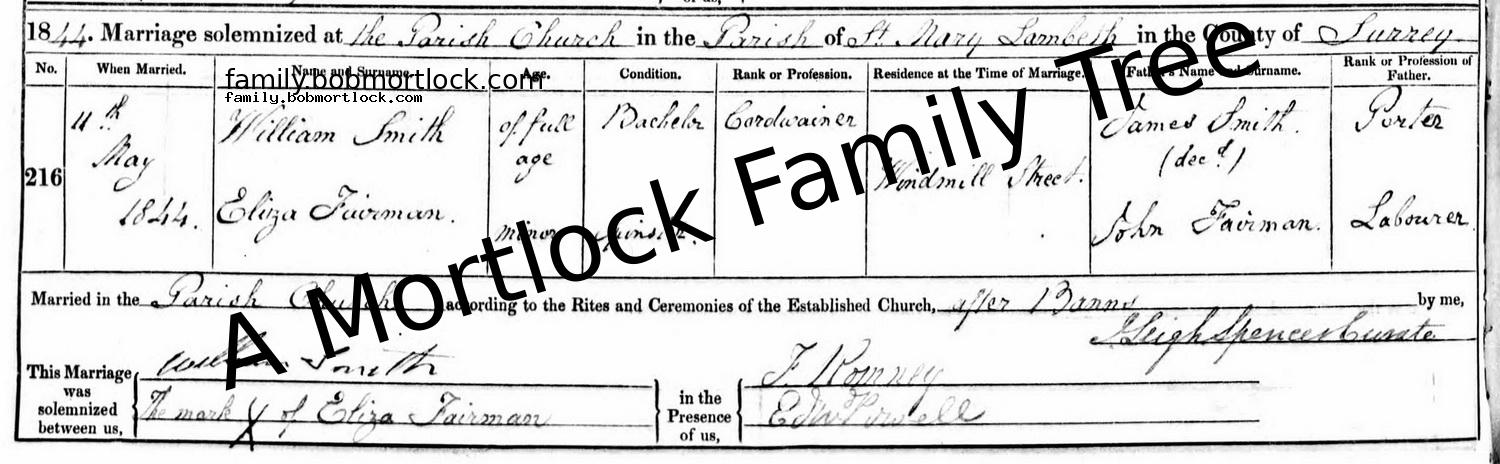 1844. Marriage solemnized at the Parish Church in the Parish of St. Mary Lambeth in the County of Surrey
No. When Married. Name and Surname. Age. Condition. Rank or Profession. Residence at the Time of Marriage. Father's Name and Surname. Rank or Profession of Father.
family.bobmortlock.com
family.bobmortlock.com
216 11th May 1844. William Smith of full age Bachelor Cordwainer Windmill Street. James Smith. (decd.) Porter
Eliza Fairman. minor Spinster. John Fairman. Labourer
A Mortlock Family Tree
Married in the Parish Church according to the Rites and Ceremonies of the Established Church, after Banns by me,
Leigh Spencer Curate
This Marriage was solemnized between us, William Smith
The mark X of Eliza Fairman
in the Presence of us, F. Romney
Edw Powell